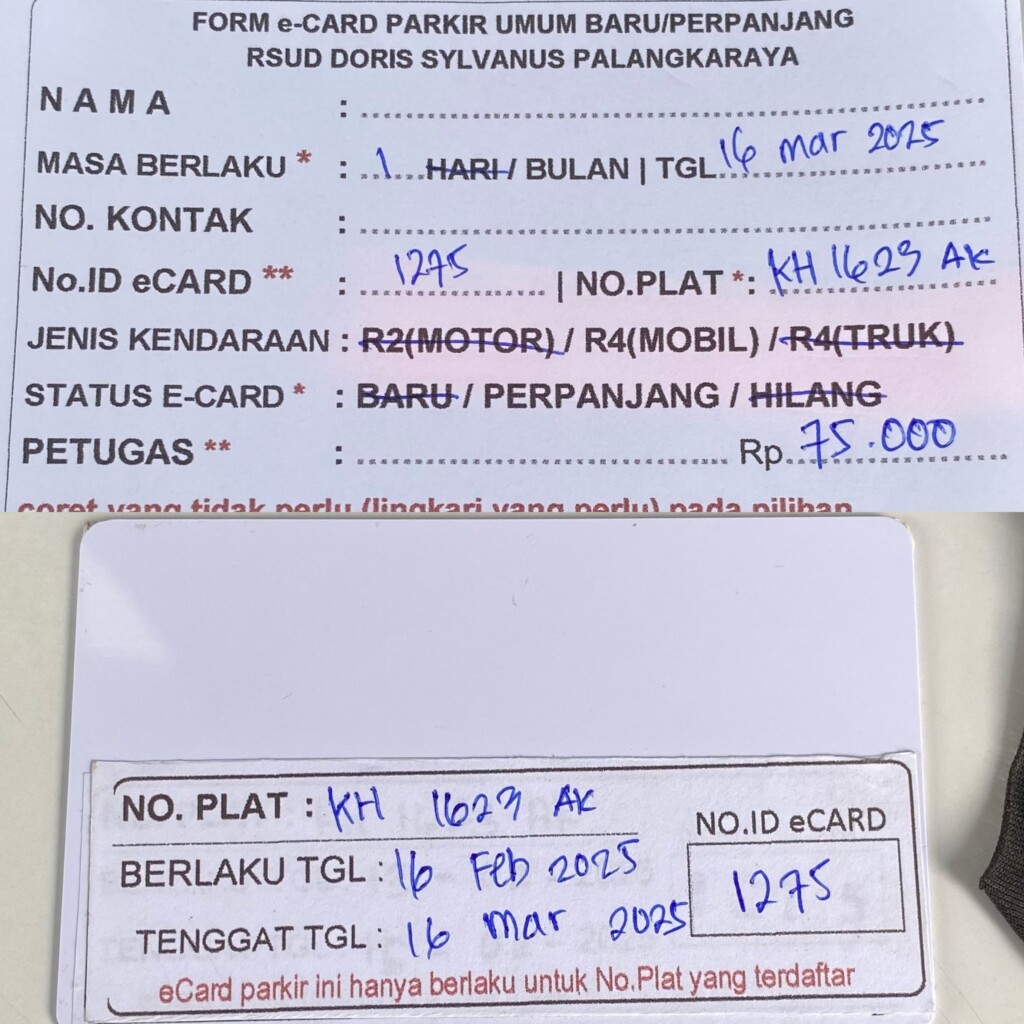 FORM e-CARD PARKIR UMUM BARU/PERPANJANG
RSUD DORIS SYLVANUS PALANGKARAYA
N A M A :
MASA BERLAKU * : 1 HARI / BULAN | TGL 16 mar 2025
NO. KONTAK :
No.ID eCARD ** : 1275 | NO.PLAT *: KH 1623 AK
JENIS KENDARAAN : R2(MOTOR) / R4(MOBIL) / R4(TRUK)
STATUS E-CARD * : BARU / PERPANJANG / HILANG
PETUGAS ** : Rp. 75.000
coret yang tidak perlu (lingkari yang perlu) pada pilihan
NO. PLAT : KH 1623 AK
NO.ID eCARD
BERLAKU TGL : 16 Feb 2025
1275
TENGGAT TGL : 16 mar 2025
eCard parkir ini hanya berlaku untuk No.Plat yang terdaftar